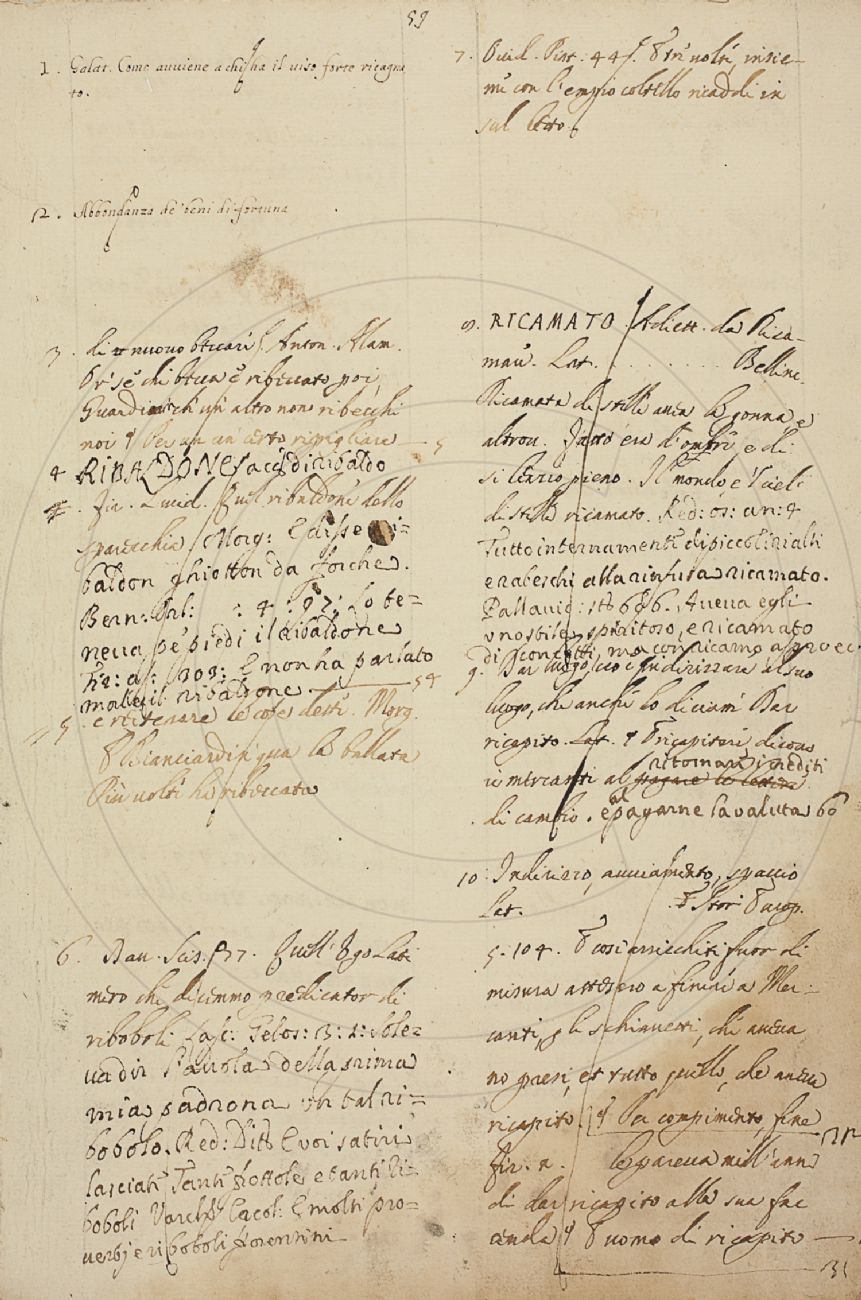 59
1. Galat. Come avviene a chi ha il viso forte ricagna
to.
12. Abbondanza de' beni di fortuna
3. di nuovo beccare Anton. Alam.
Or se chi becca è ribeccato poi,
Guardi ch' un altro non ribecchi
noi Per un certo ripigliare — 5
4 RIBALDONE accr. di ribaldo
Fir. Lucid. Quel ribaldone dello
sparecchia Morg: E disse ri=
baldon ghiotton da forche.
Bern: Orl: : 4 : 92: Lo te=
neva pe' piedi il ribaldone
Fr: as: 303: E non ha parlato
male il ribaldone — 54
5. e ritenare le cose dette. Morg.
Bianciardin qua la ballata
Più volte ha ribeccata
6. Dav. Scis. 77. Quell' Ugo Lati
mero che dicemmo predicator di
riboboli Lasc: Gelos: 3: 1: Sole=
va dir l'avola della prima
mia padrona un tal ri=
bobolo. Red: Ditt E voi satiri
lasciate Tante frottole e tanti ri=
boboli Varch Ercol: E molti pro=
verbj e riboboli fiorentini
7. Ovid. Pist: 44 tre volte, insie=
me con l'empio coltello ricaddi in
sul letto
8. RICAMATO Adiett. da Rica=
mare. Lat. . . . . . . . . Bellinc.
Ricamata di stelle avea la gonna e
altrov. Fatto era d'ombre e di
silenzio pieno. Il mondo, e 'cieli
di stelle ricamato. Red: os: an: 4
Tutto internamente di piccoli rialti
e rabeschi alla rinfusa ricamato.
Pallavic: st: 686. Aveva egli
vno stile spiritoso, e ricamato
di concetti, ma con ricamo
9. Dar luogo, cioè indirizzare al suo
luogo, che anche lo diciam Dar
ricapito. Lat. ricapitare dicono
i mercanti al ritornar i mediti
pagare le lettere
di cambio. e pagarne la valuta 60
10. Indirizzo, avviamento, spaccio
Lat. Stor
5. 104. e così arricchiti fuor di
misura attesero a finire a Mer=
canti, gli schiavetti, che aveva
no presi, et tutto quello, che aveva
ricapito. Per compimento, fine
Fir. n. le pareva mill' anni
di dar ricapito alla sua fac
cenda uomo di ricapito —
131